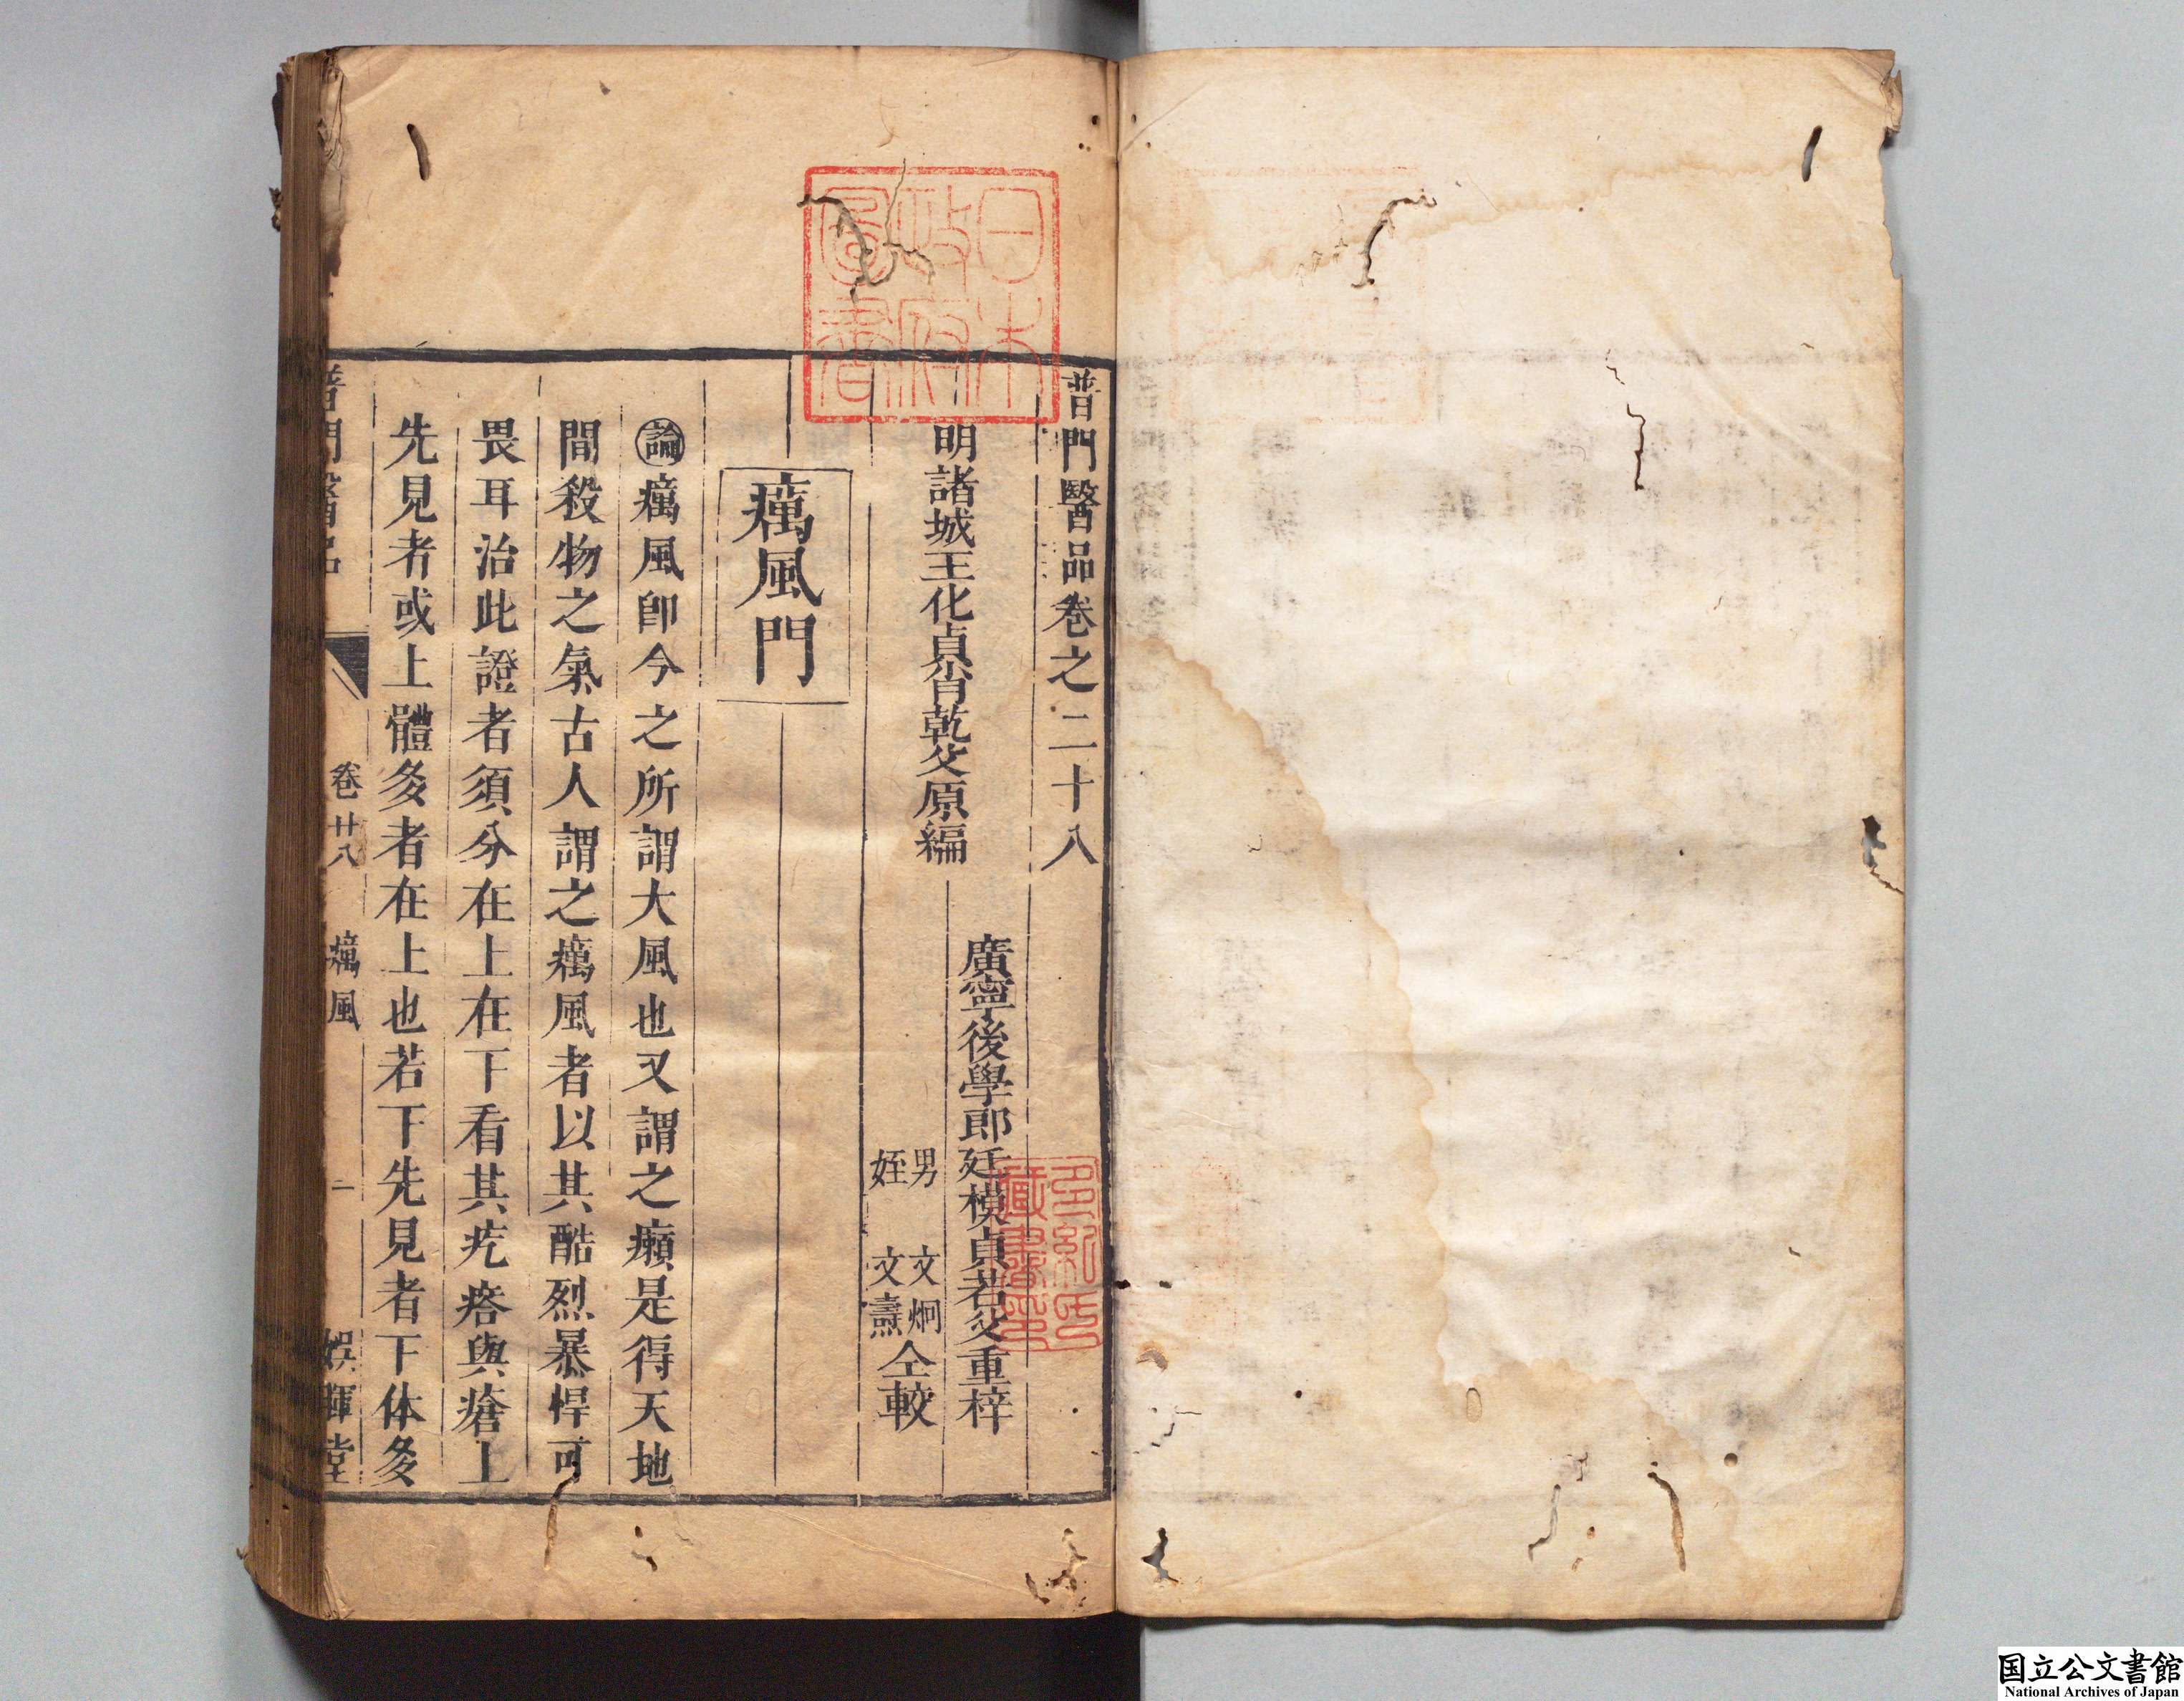 普門醫品卷之二十八
明諸城王化貞肖乾父原編
廣寧後學郎廷模貞若父重梓
男 文炯
姪 文燾
仝較
癘風門
論癘風卽今之所謂大風也又謂之癩是得天地
間殺物之氣古人謂之癘風者以其酷烈暴悍可
畏耳治此證者須分在上在下看其疙瘩與瘡上
先見者或上體多者在上也若下先見者下体多
普門醫品 卷廿八 癘風 二 娛暉堂
日本
政府
圖書
多紀氏
藏書印
国立公文書館
National Archives of Japan